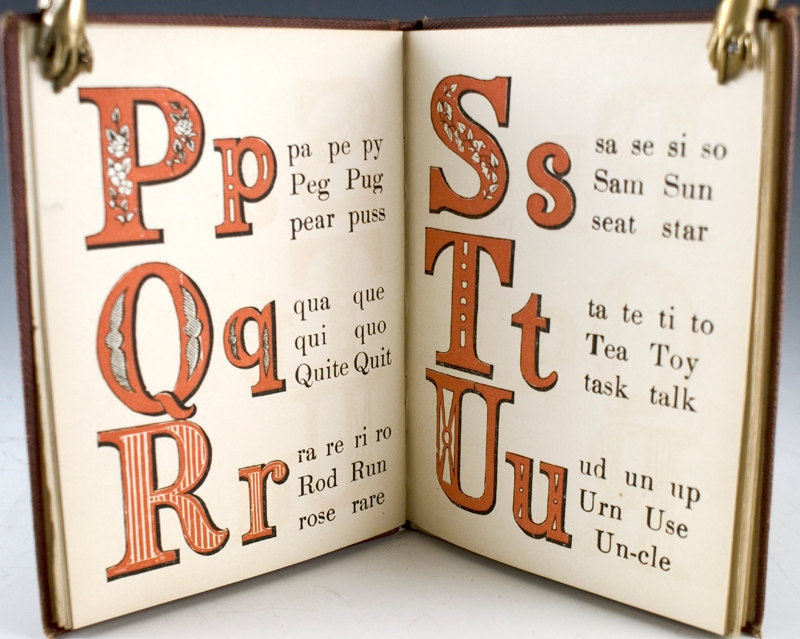 Pp
pa pe py
Peg Pug
pear puss
Qq
qua que
qui quo
Quite Quit
Rr
ra re ri ro
Rod Run
rose rare
Ss
sa se si so
Sam Sun
seat star
Tt
ta te ti to
Tea Toy
task talk
Uu
ud un up
Urn Use
Un-cle